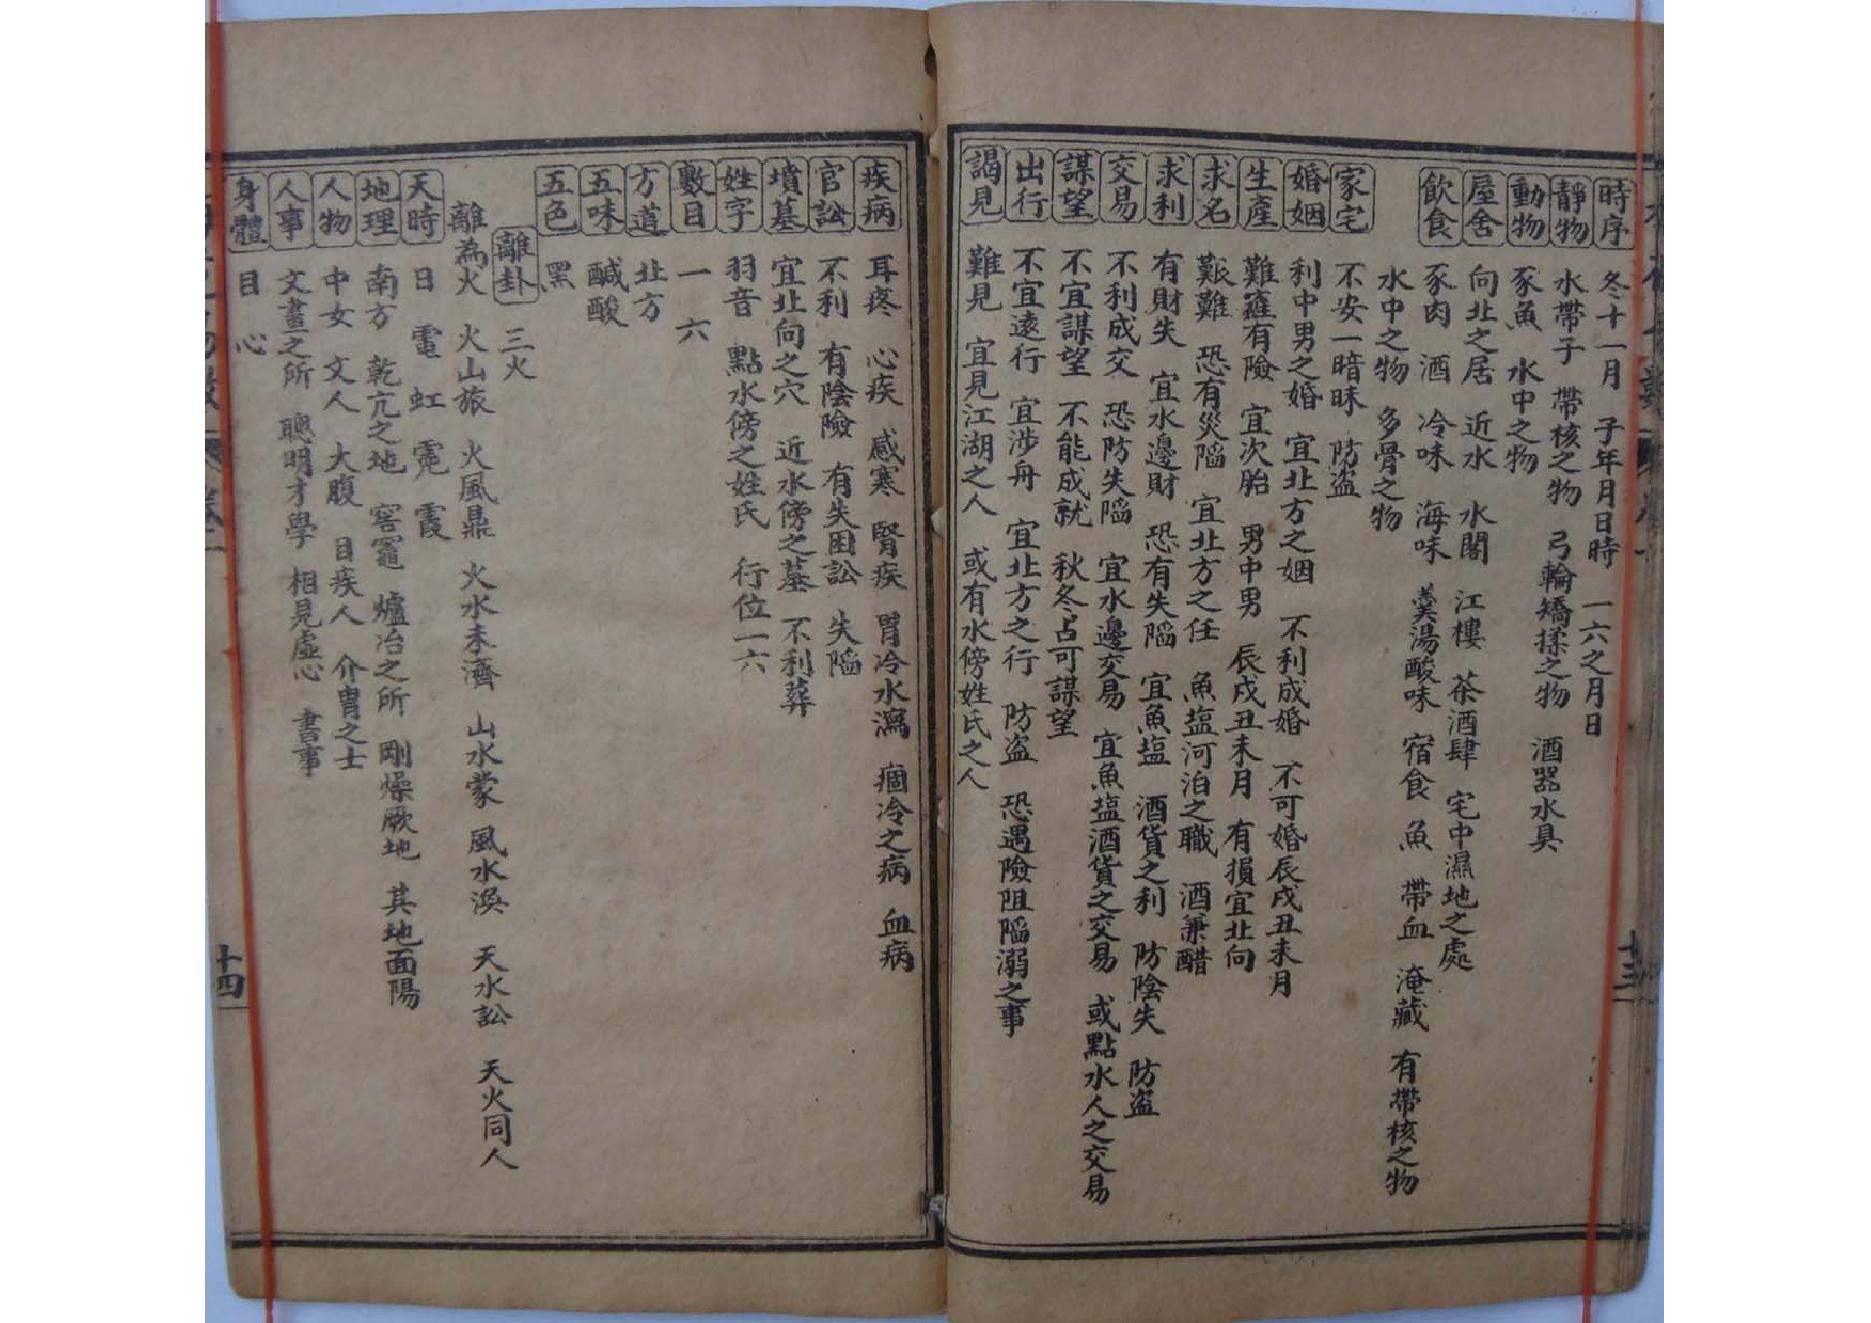 時序 冬十一月 子年月日時 一六之月日
靜物 水帶子 帶核之物 弓輪矯揉之物 酒器水具
動物 豕魚 水中之物
屋舍 向北之居 近水 水閣 江樓 茶酒肆 宅中濕地之處
飲食 豕肉 酒 冷味 海味 羹湯酸味 宿食 魚 帶血 淹藏 有帶核之物
水中之物 多骨之物
家宅 不安一暗昧 防盜
婚姻 利中男之婚 宜北方之姻 不利成婚 不可婚辰戌丑未月
生產 難 有險 宜次胎 男中男 辰戌丑未月 有損宜北向
求名 艱難 恐有災陷 宜北方之任 魚塩河泊之職 酒兼醋
求利 有財失 宜水邊財 恐有失陷 宜魚塩 酒貨之利 防陰失 防盜
交易 不利成交 恐防失陷 宜水邊交易 宜魚塩酒貨之交易 或點水人之交易
謀望 不宜謀望 不能成就 秋冬占可謀望
出行 不宜遠行 宜涉舟 宜北方之行 防盜 恐遇險阻陷溺之事
謁見 難見 宜見江湖之人 或有水傍姓氏之人
十三
疾病 耳疼 心疾 感寒 腎疾 胃冷水瀉 痼冷之病 血病
官訟 不利 有陰險 有失困訟 失陷
墳墓 宜北向之穴 近水傍之墓 不利葬
姓字 羽音 點水傍之姓氏 行位一六
數目 一 六
方道 北方
五味 鹹酸
五色 黑
離卦 三火
離為火 火山旅 火風鼎 火水未濟 山水蒙 風水渙 天水訟 天火同人
天時 日 電 虹 霓 霞
地理 南方 乾亢之地 窖竈 爐冶之所 剛燥厥地 其地面陽
人物 中女 文人 大腹 目疾人 介冑之士
人事 文畫之所 聰明才學 相見虛心 書事
身體 目 心
十四